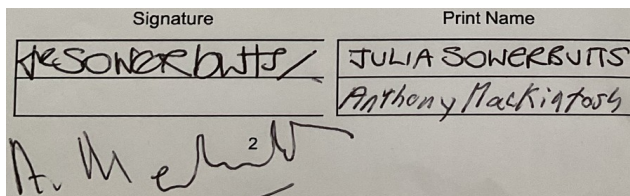 Signature Print Name
SOWERBUTTS JULIA SOWERBUTTS
Anthony Mackintosh
2
A.